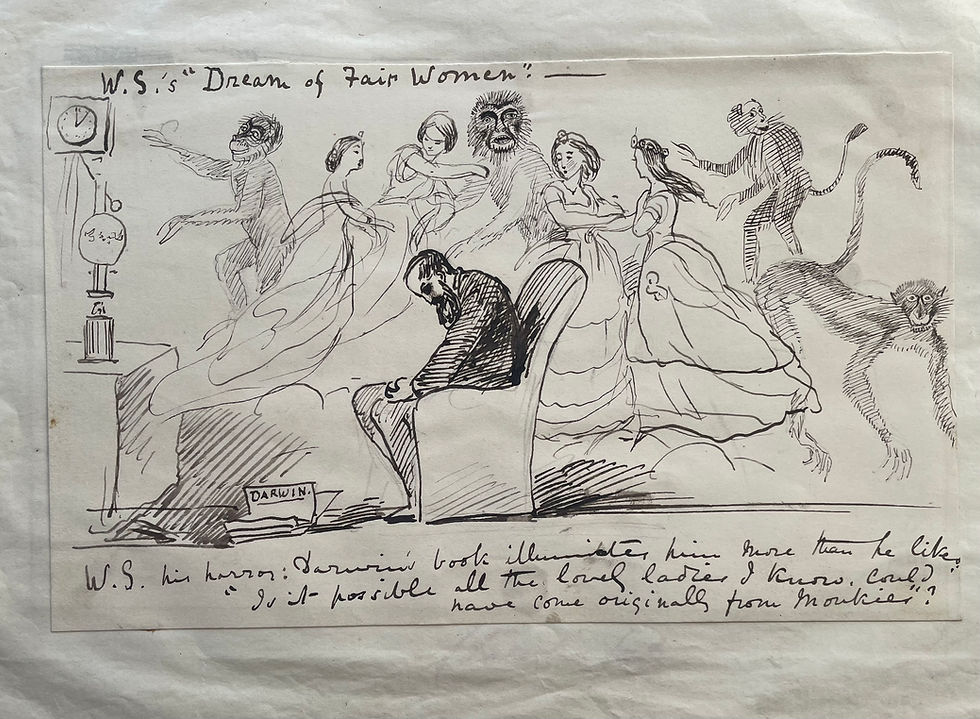 W.S.'s "Dream of Fair Women": —
DARWIN.
W.S. his horror: Darwin's book illuminates him more than he likes
"Is it possible all the lovely ladies I know, could
have come originally from Monkies"?